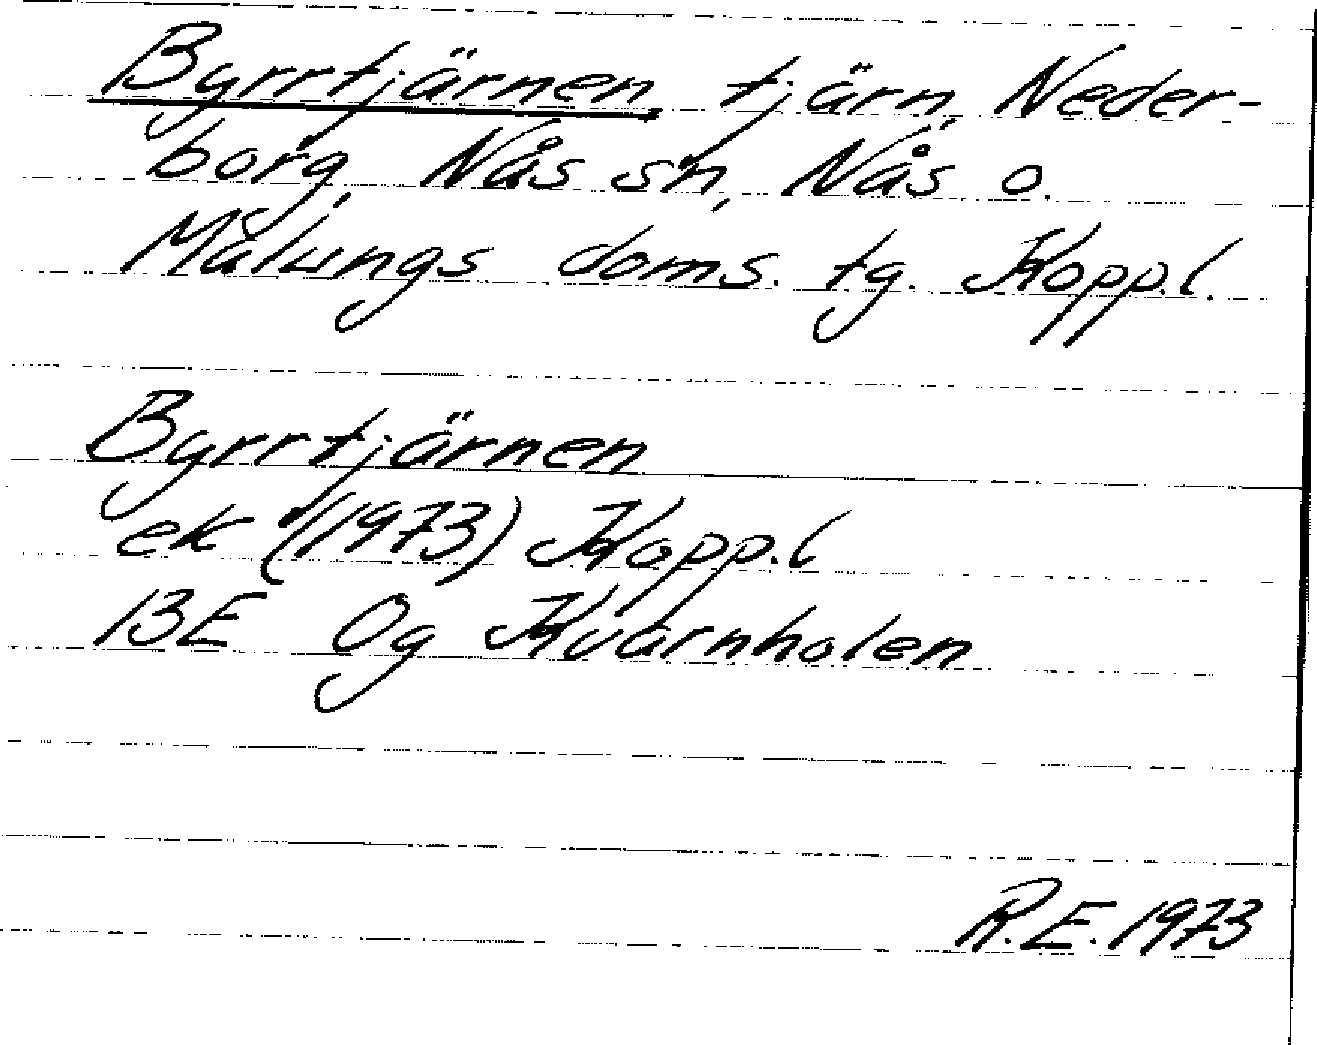 Byrrtjärnen, tjärn, Neder-
borg, Nås sn, Nås o.
Malungs doms. tg. Kopp.l.
Byrrtjärnen
ek (1973) Kopp.l
13E 0g Kvarnholen
R.E. 1973